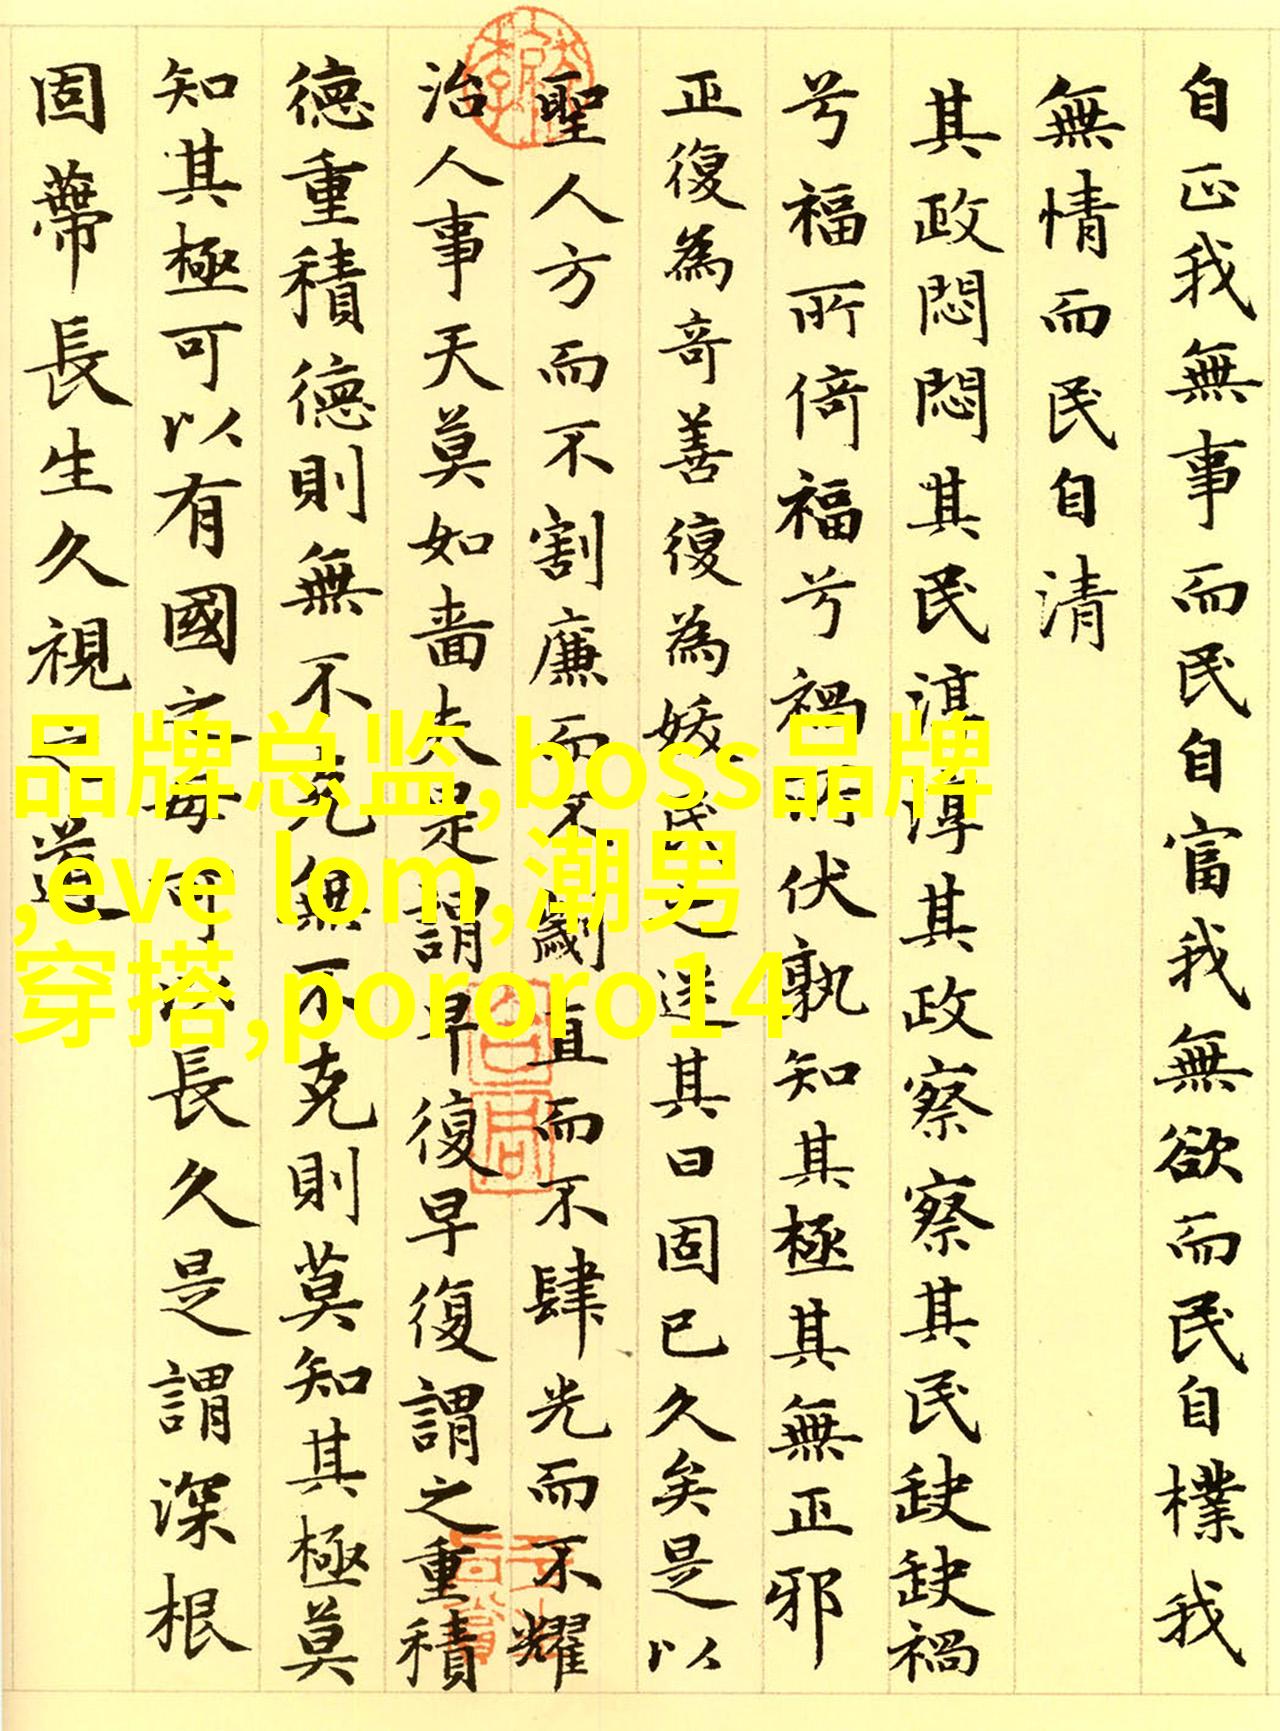 自正我無事而民自富我無欲而民自樸我
無情而民自清
其政悶悶其民淳淳其政察察其民缺缺禍
兮福所倚福兮禍所伏孰知其極其無正邪
正復為奇善復為妖民之迷其日固已久矣是以
聖人方而不割廉而不劌直而不肆光而不耀
治人事天莫如嗇夫是謂早復早復謂之重積
德重積德則無不克無不克則莫知其極莫
知其極可以有國之母可以長久是謂深根
固蔕長生久視之道
品牌总监,boss品牌
,eve lom,潮男
穿搭,pororo14